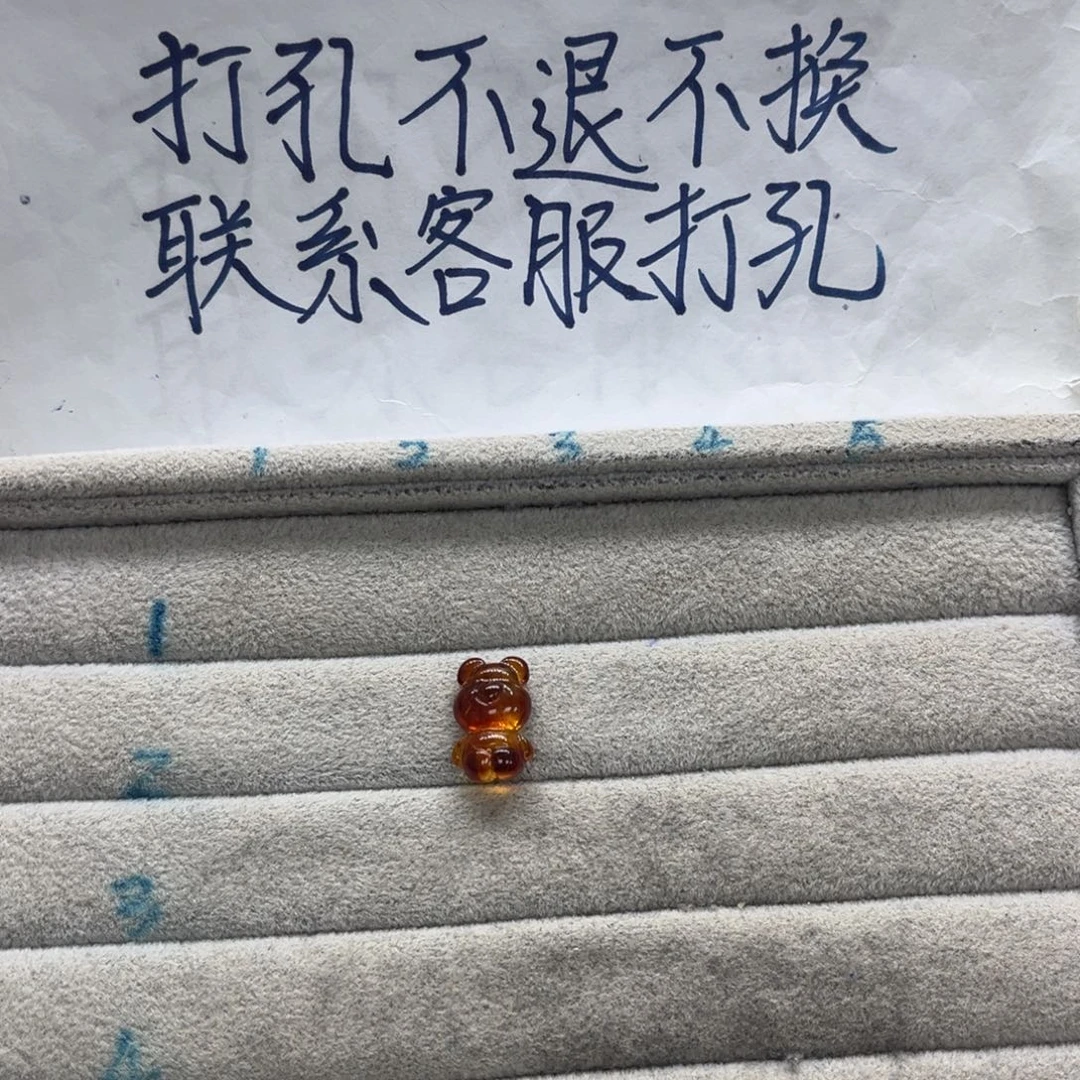 打孔不退不换
联系客服打孔
1 2 3 4 5
1
2
3
4